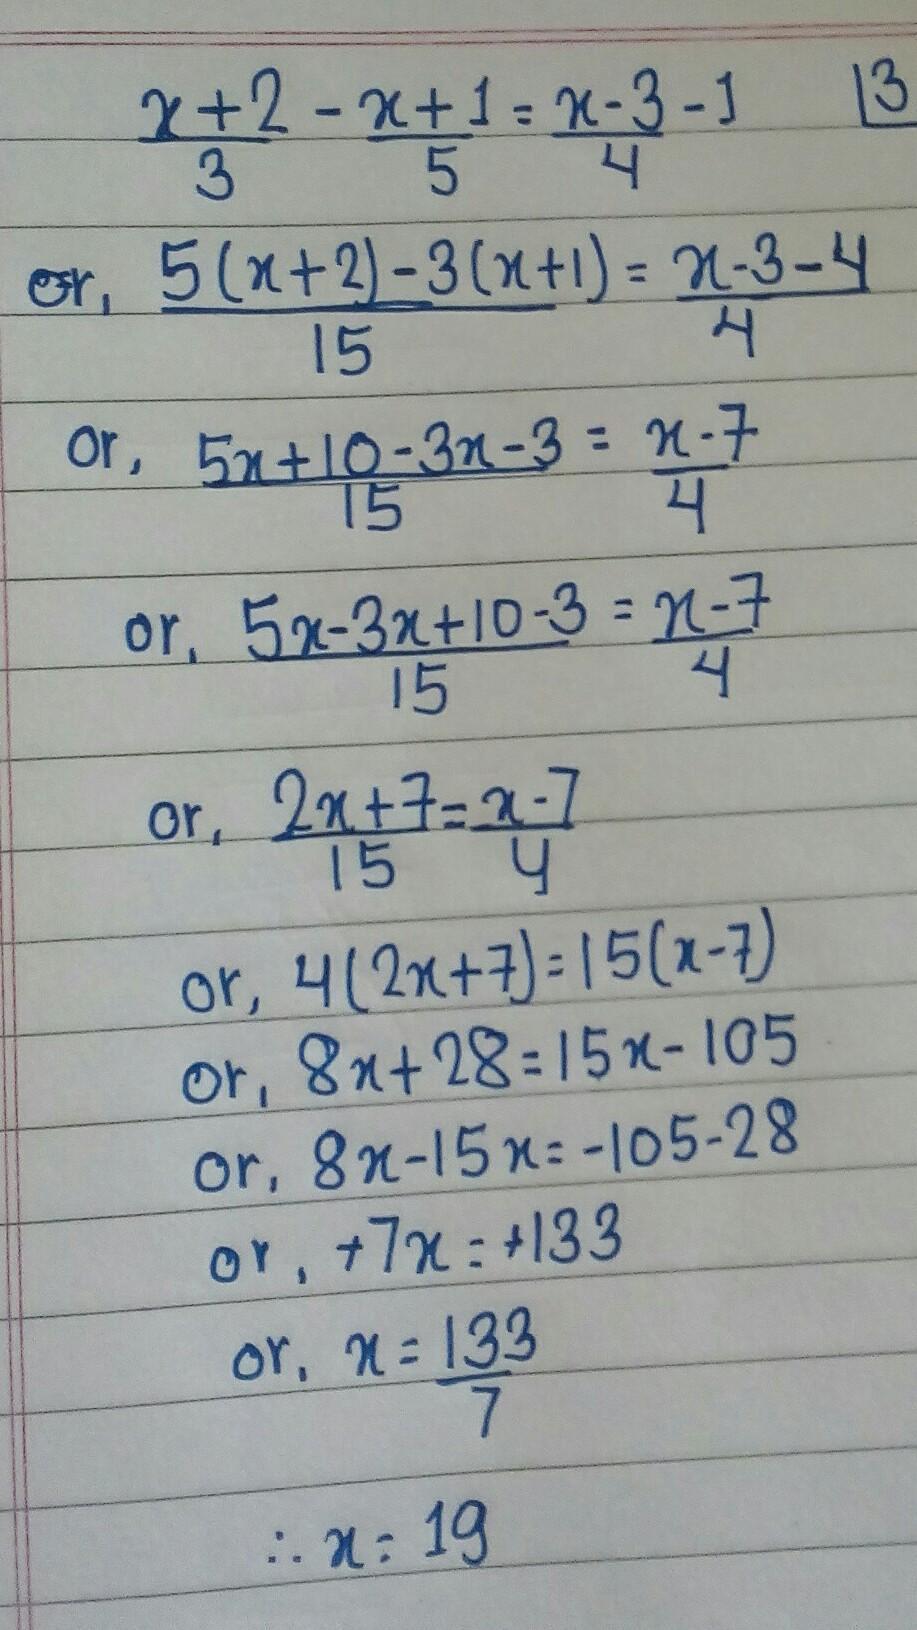 x+2/3 - x+1/5 = x-3/4 - 1 13
or, 5(x+2)-3(x+1)/15 = x-3-4/4
or, 5x+10-3x-3/15 = x-7/4
or, 5x-3x+10-3/15 = x-7/4
or, 2x+7/15 = x-7/4
or, 4(2x+7)=15(x-7)
or, 8x+28=15x-105
or, 8x-15x=-105-28
or, +7x=+133
or, x=133/7
∴ x=19